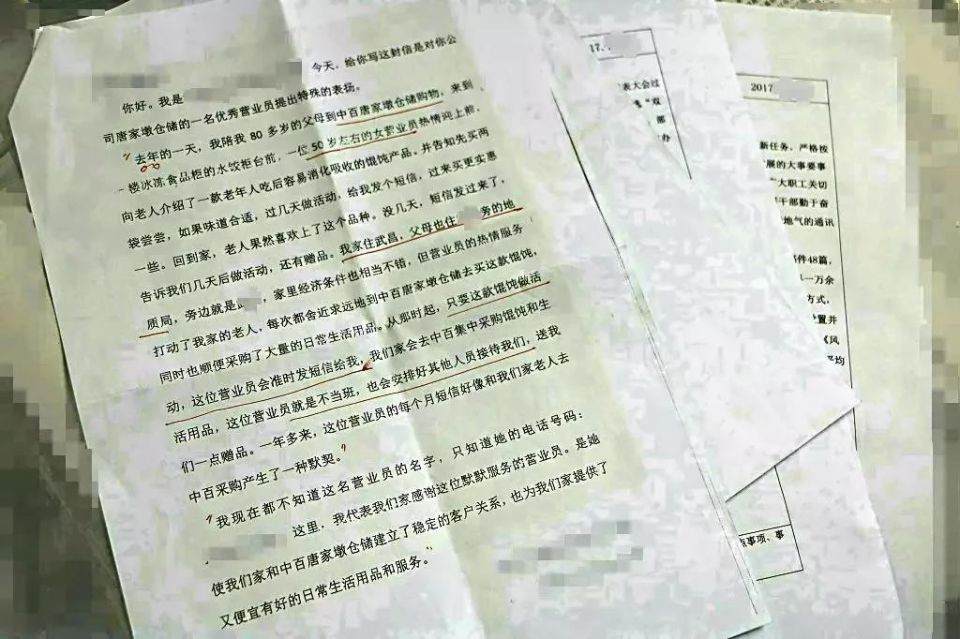 今天，给你写这封信是对你公
你好。我是
司唐家墩仓储的一名优秀营业员提出特殊的表扬。
去年的一天，我陪我 80 多岁的父母到中百唐家墩仓储购物，来到
一楼冰冻食品柜的水饺柜台前，一位 50 岁左右的女营业员热情迎上前，
向老人介绍了一款老年人吃后容易消化吸收的馄饨产品。并告知先买两
袋尝尝，如果味道合适，过几天做活动，给我发个短信，过来买更实惠
一些。回到家，老人果然喜欢上了这个品种。没几天，短信发过来了，
告诉我们几天后做活动，还有赠品。我家住武昌，父母也住 旁的地
质局，旁边就是 ，家里经济条件也相当不错，但营业员的热情服务
打动了我家的老人，每次都舍近求远地到中百唐家墩仓储去买这款馄饨，
同时也顺便采购了大量的日常生活用品。从那时起，只要这款馄饨做活
动，这位营业员会准时发短信给我，我们家会去中百集中采购馄饨和生
活用品，这位营业员就是不当班，也会安排好其他人员接待我们，送我
们一点赠品。一年多来，这位营业员的每个月短信好像和我们家老人去
中百采购产生了一种默契。
我现在都不知道这名营业员的名字，只知道她的电话号码：
这里，我代表我们家感谢这位默默服务的营业员。是她
使我们家和中百唐家墩仓储建立了稳定的客户关系，也为我们家提供了
又便宜有好的日常生活用品和服务。
17.
表大会过
"双
部
办
2017
新任务、严格按
展的大事要事
广大职工关切
干部勤于奋
地气的通讯
件48篇，
一万余
方式，
置并
《风
平均
重事项、事